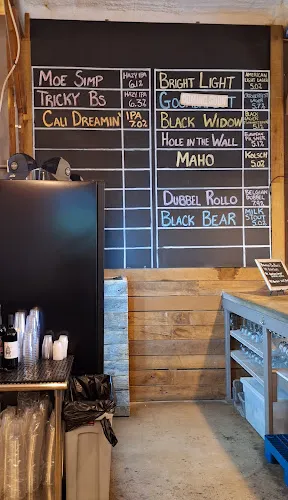 MOE SIMP HAZY IPA 6.12
TRICKY BS HAZY IPA 6.32
CALI DREAMIN' IPA 7.02
BRIGHT LIGHT AMERICAN LIGHT LAGER 5.02
BLACK WIDOW BLACK LAGER
HOLE IN THE WALL
MAHO KOLSCH 5.02
DUBBEL ROLLO BELGIAN DUBBEL
BLACK BEAR MILK STOUT 5.02